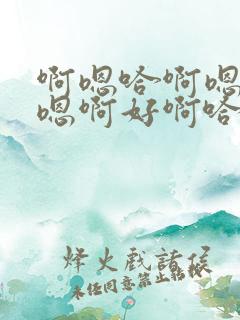 啊嗯哈啊嗯
嗯啊好啊哈
烽火戏诸侯
未经同意禁止转载